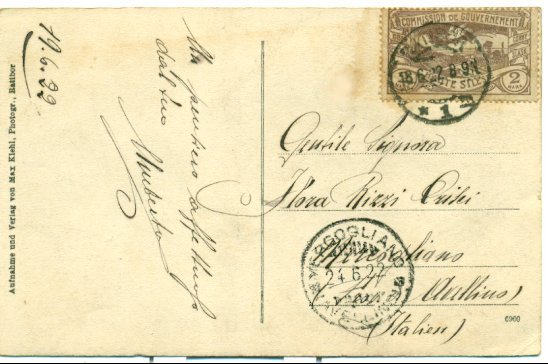 19.6.22
Un pensiero affettuoso
dal tuo
Umberto
Aufnahme und Verlag von Max Kiehl, Photogr., Ratibor
COMMISSION DE GOUVERNEMENT
HAUTE SILÉSIE
2
MARK
18.6.22.8-9N
* 1 *
Gentile Signora
Flora Rizzi
Mercogliano
Avellino
(Italien)
MERCOGLIANO
24.6.22
AVELLINO
6960